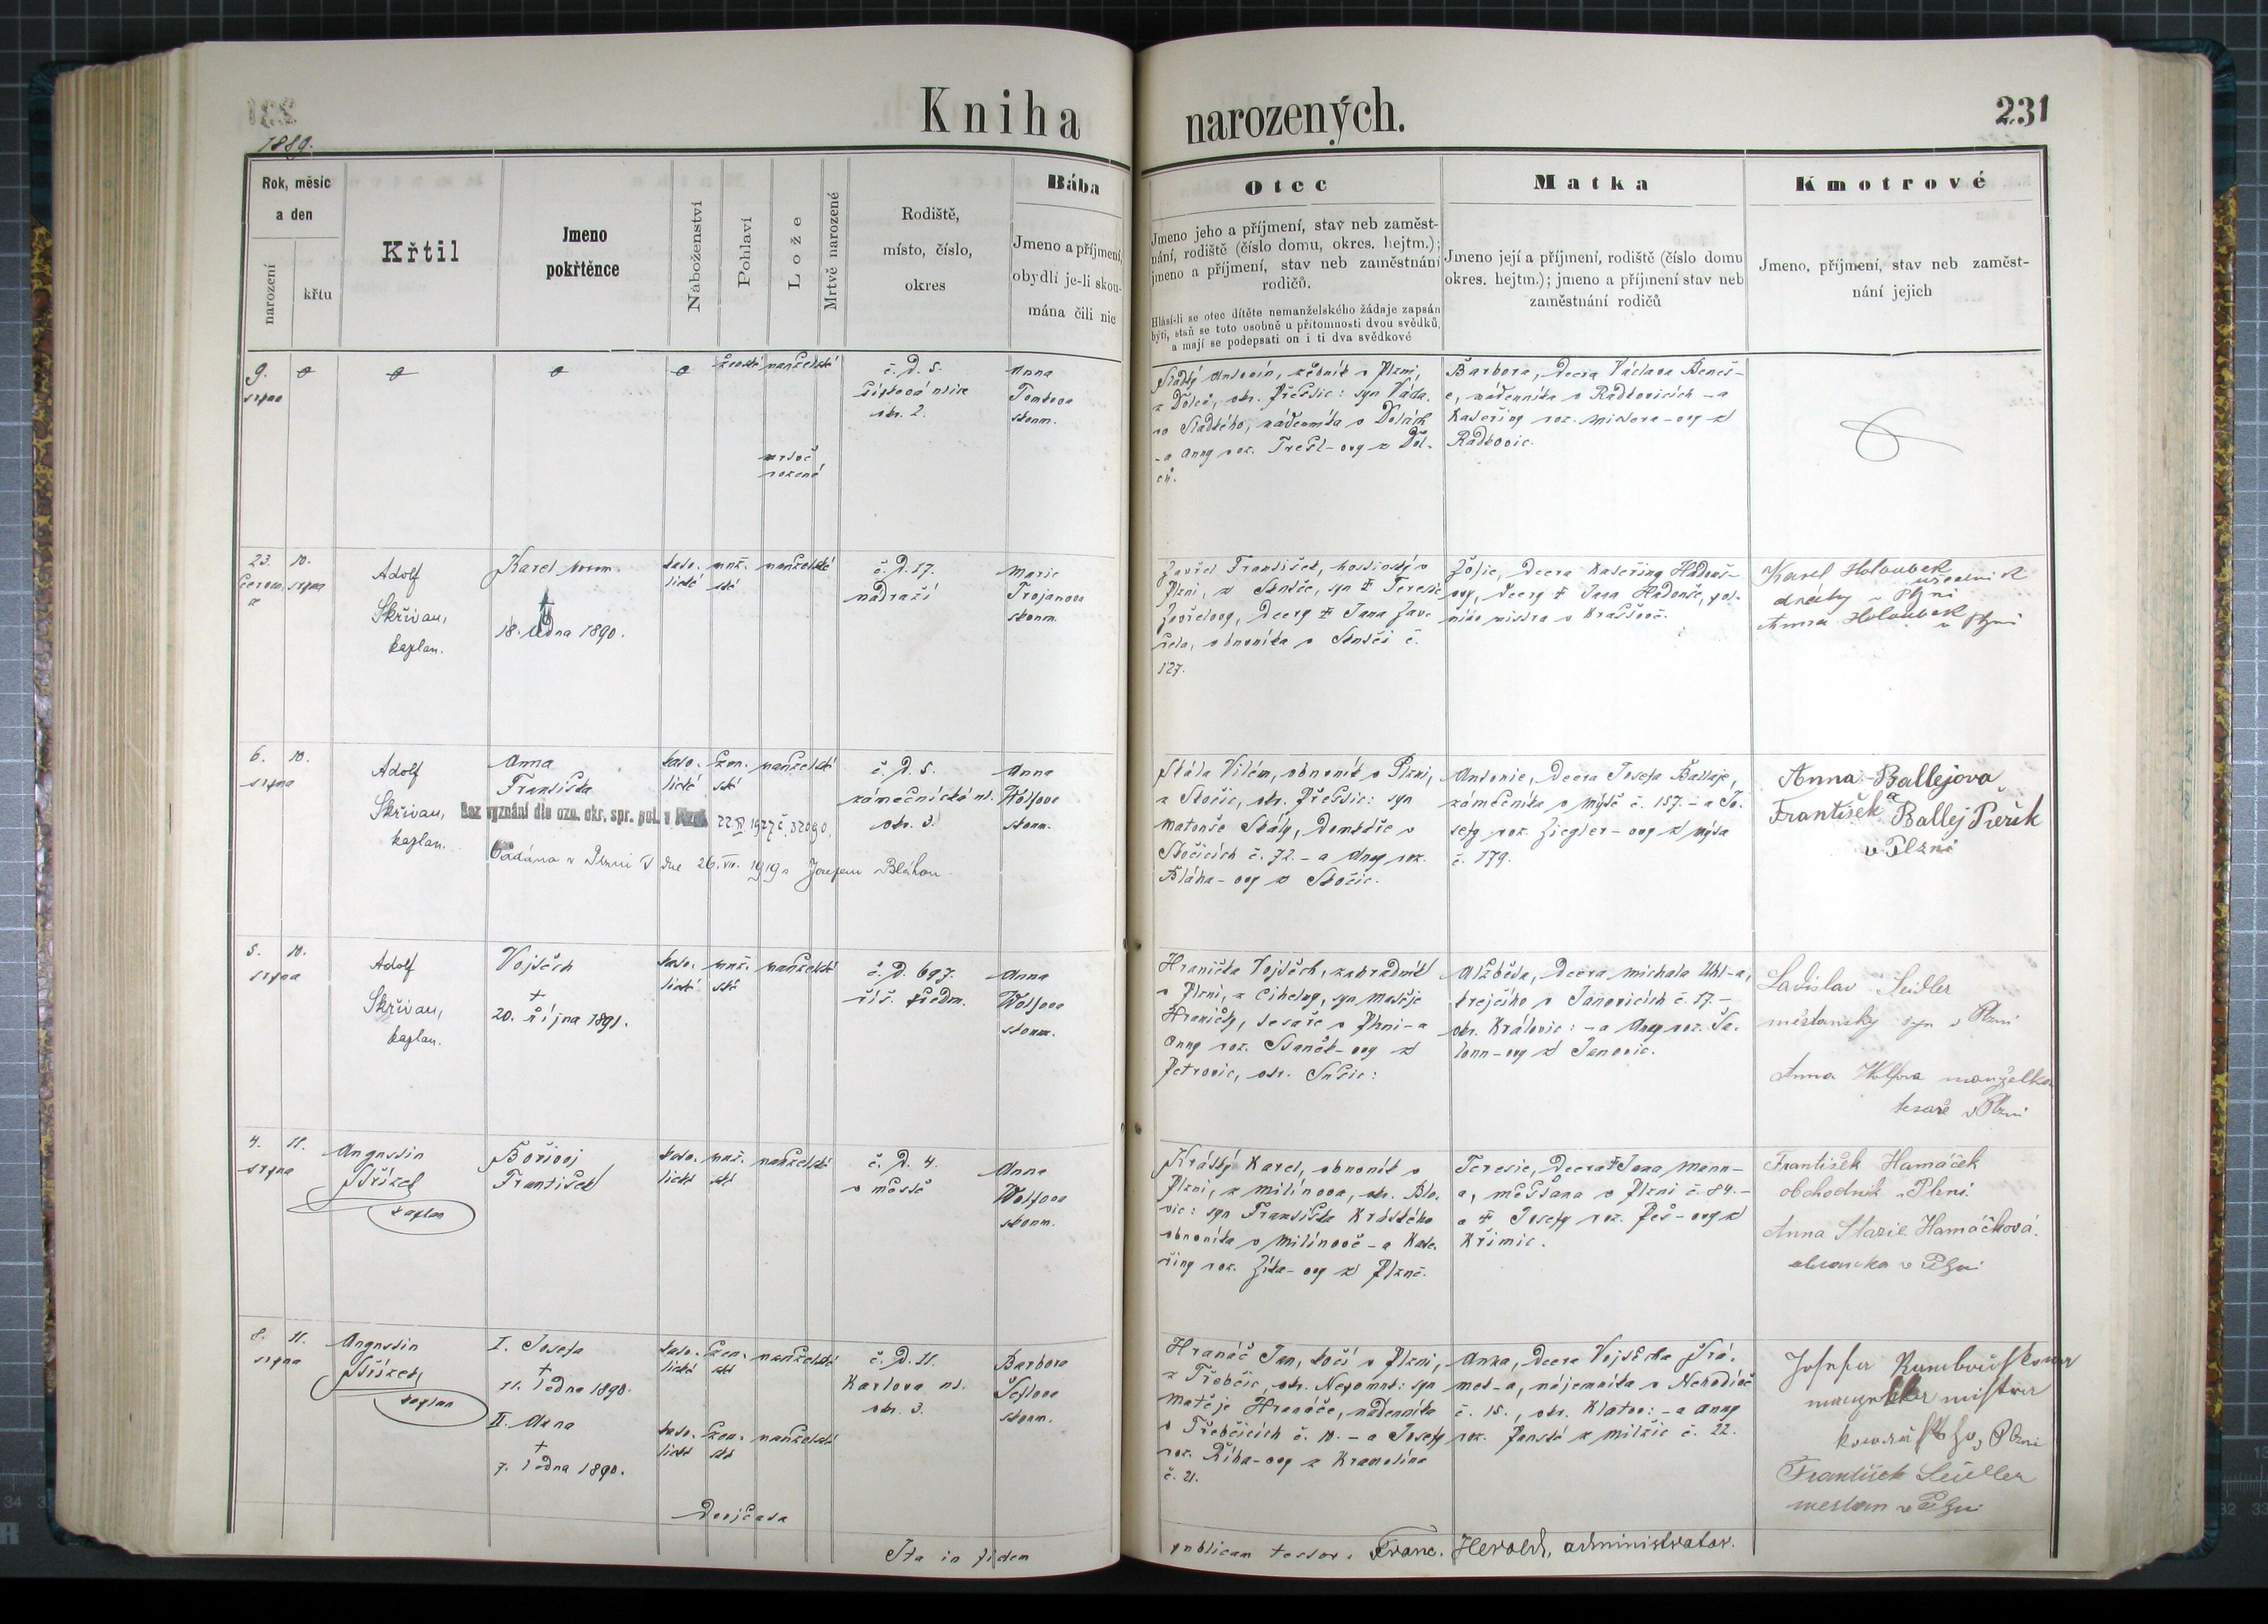 Kniha narozených.
231
1889.
Rok, měsíc
a den
narození
křtu
Křtil
Jmeno
pokřtěnce
Náboženství
Pohlaví
Lože
Mrtvě narozené
Rodiště,
místo, číslo,
okres
Bába
Jmeno a příjmení,
obydlí je-li skou-
mána čili nic
Otec
Jmeno jeho a příjmení, stav neb zaměst-
nání, rodiště (číslo domu, okres. hejtm.);
jmeno a příjmení, stav neb zaměstnání
rodičů.
Hlásí-li se otec dítěte nemanželského žádaje zapsán
býti, staň se toto osobně u přítomnosti dvou svědků,
a mají se podepsati on i ti dva svědkové
Matka
Jmeno její a příjmení, rodiště (číslo domu
okres. hejtm.); jmeno a příjmení stav neb
zaměstnání rodičů
Kmotrové
Jmeno, příjmení, stav neb zaměst-
nání jejich
9.
srpna
ženské manželské
mrtvě
rozené
č. d. 5.
obv. 2.
Anna
Tomkova
zkoum.
Sladký Antonín, v Plzni,
okr. Přeštic: syn Václa-
va Sladkého, nádenníka v
a Anny roz.
Barbora, dcera Václava Beneš-
e, nádenníka v Radkovicích - a
Kateřiny roz. - ovy z
Radkovic.
23. 10.
červen- srpna
ce
Adolf
Skřivan,
kaplan.
Karel
†
18. ledna 1890.
kato- muž- manželské
lické ské
č. d. 17.
nádraží
Marie
Trojanova
zkoum.
Zavřel František, hostinský v
Plzni, z syn † Terezie
Zavřelovy, dcery † Jana Zav-
řela, obuvníka v č.
127.
Žofie, dcera Kateřiny
ovy, dcery † Jana
mistra v
Karel Holoubek
úředník
dráhy v Plzni
Anna Holoubek
v Plzni
6. 10.
srpna
Adolf
Skřivan,
kaplan.
Anna
Františka
kato- žen- manželské
lické ské
Bez vyznání dle ozn. okr. spr. pol. v Plzni 22 XI 1927 č. 32090.
Oddána v Plzni dne 26. VII. 1919 s Josefem Bláhou.
č. d. 5.
zámečnická ul.
obv. 3.
Anna
Wolfova
zkoum.
Skála Vilém, obuvník v Plzni,
z Stočic, okr. Přeštic: syn
Matouše Skály, domkáře v
Stočicích č. 72. - a Anny roz.
Bláha - ovy z Stočic.
Antonie, dcera Josefa Balleje,
zámečníka v Mýtě č. 157. - a Jo-
sefy roz. Ziegler - ovy z Mýta
č. 179.
Anna Ballejova
František Ballej
v Plzni
5. 10.
srpna
Adolf
Skřivan,
kaplan.
Vojtěch
†
20. října 1891.
kato- muž- manželské
lické ské
č. d. 697.
říš. předm.
Anna
Wolfova
zkoum.
Hranička Vojtěch, zahradník
v Plzni, z Cihelny, syn Matěje
Hraničky, tesaře v Plzni - a
Anny roz. Staněk - ovy z
Petrovic, okr. Sušic:
Alžběta, dcera Michala Uhl-a,
krejčího v Janovicích č. 17. -
okr. Kralovic: - a Anny roz. Ša-
- ovy z Janovic.
Ladislav Seidler
měšťanský syn v Plzni
Anna Wolfova manželka
tesaře v Plzni
4. 11.
srpna
Augustin
Střízek
kaplan
Bořivoj
František
kato- muž- manželské
lické ské
č. d. 4.
v městě
Anna
Wolfova
zkoum.
Krátký Karel, obuvník v
Plzni, z Milínova, okr. Blo-
vic: syn Františka Krátkého
obuvníka v Milínově - a Kate-
řiny roz. Zíka - ovy z Plzně.
Terezie, dcera † Jana Mann-
a, měšťana v Plzni č. 84. -
a † Josefy roz. Peš - ovy z
Křimic.
František Hamáček
obchodník v Plzni.
Anna Hamáčková.
v Plzni
8. 11.
srpna
Augustin
Střízek,
kaplan
I. Josefa
†
11. ledna 1890.
II. Anna
†
7. ledna 1890.
kato- žen- manželské
lické ské
kato- žen- manželské
lické ské
Dvojčata
č. d. 11.
Karlova ul.
obv. 3.
Barbora
zkoum.
Hranáč Jan, kočí v Plzni,
z Třebčic, okr. Nepomuk: syn
Matěje Hranáče, nádenníka
v Třebčicích č. 10. - a Josefy
roz. Říha - ovy z Kramolína
č. 21.
Anna, dcera Vojtěcha Šrá-
mek-a, nájemníka v Nehodivě
č. 15., okr. Klatov: - a Anny
roz. Panské z Milčic č. 22.
Josefa
manželka mistra
v Plzni
František Seidler
mešťan v Plzni
Ita in fidem publicam testor. Franc. Herold, administrator.